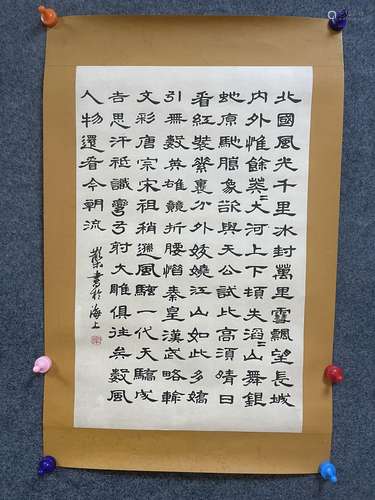 北國風光千里冰封萬里雪飄望長城
内外惟餘莽〻大河上下頓失滔〻山舞銀
蛇原馳臘象欲與天公試比高須晴日
看紅裝素裹分外妖嬈江山如此多嬌
引無數英雄競折腰惜秦皇漢武略輸
文彩唐宗宋祖稍遜風騷一代天驕成
吉思汗祗識彎弓射大雕俱往矣數風
人物還看今朝流
書於海上